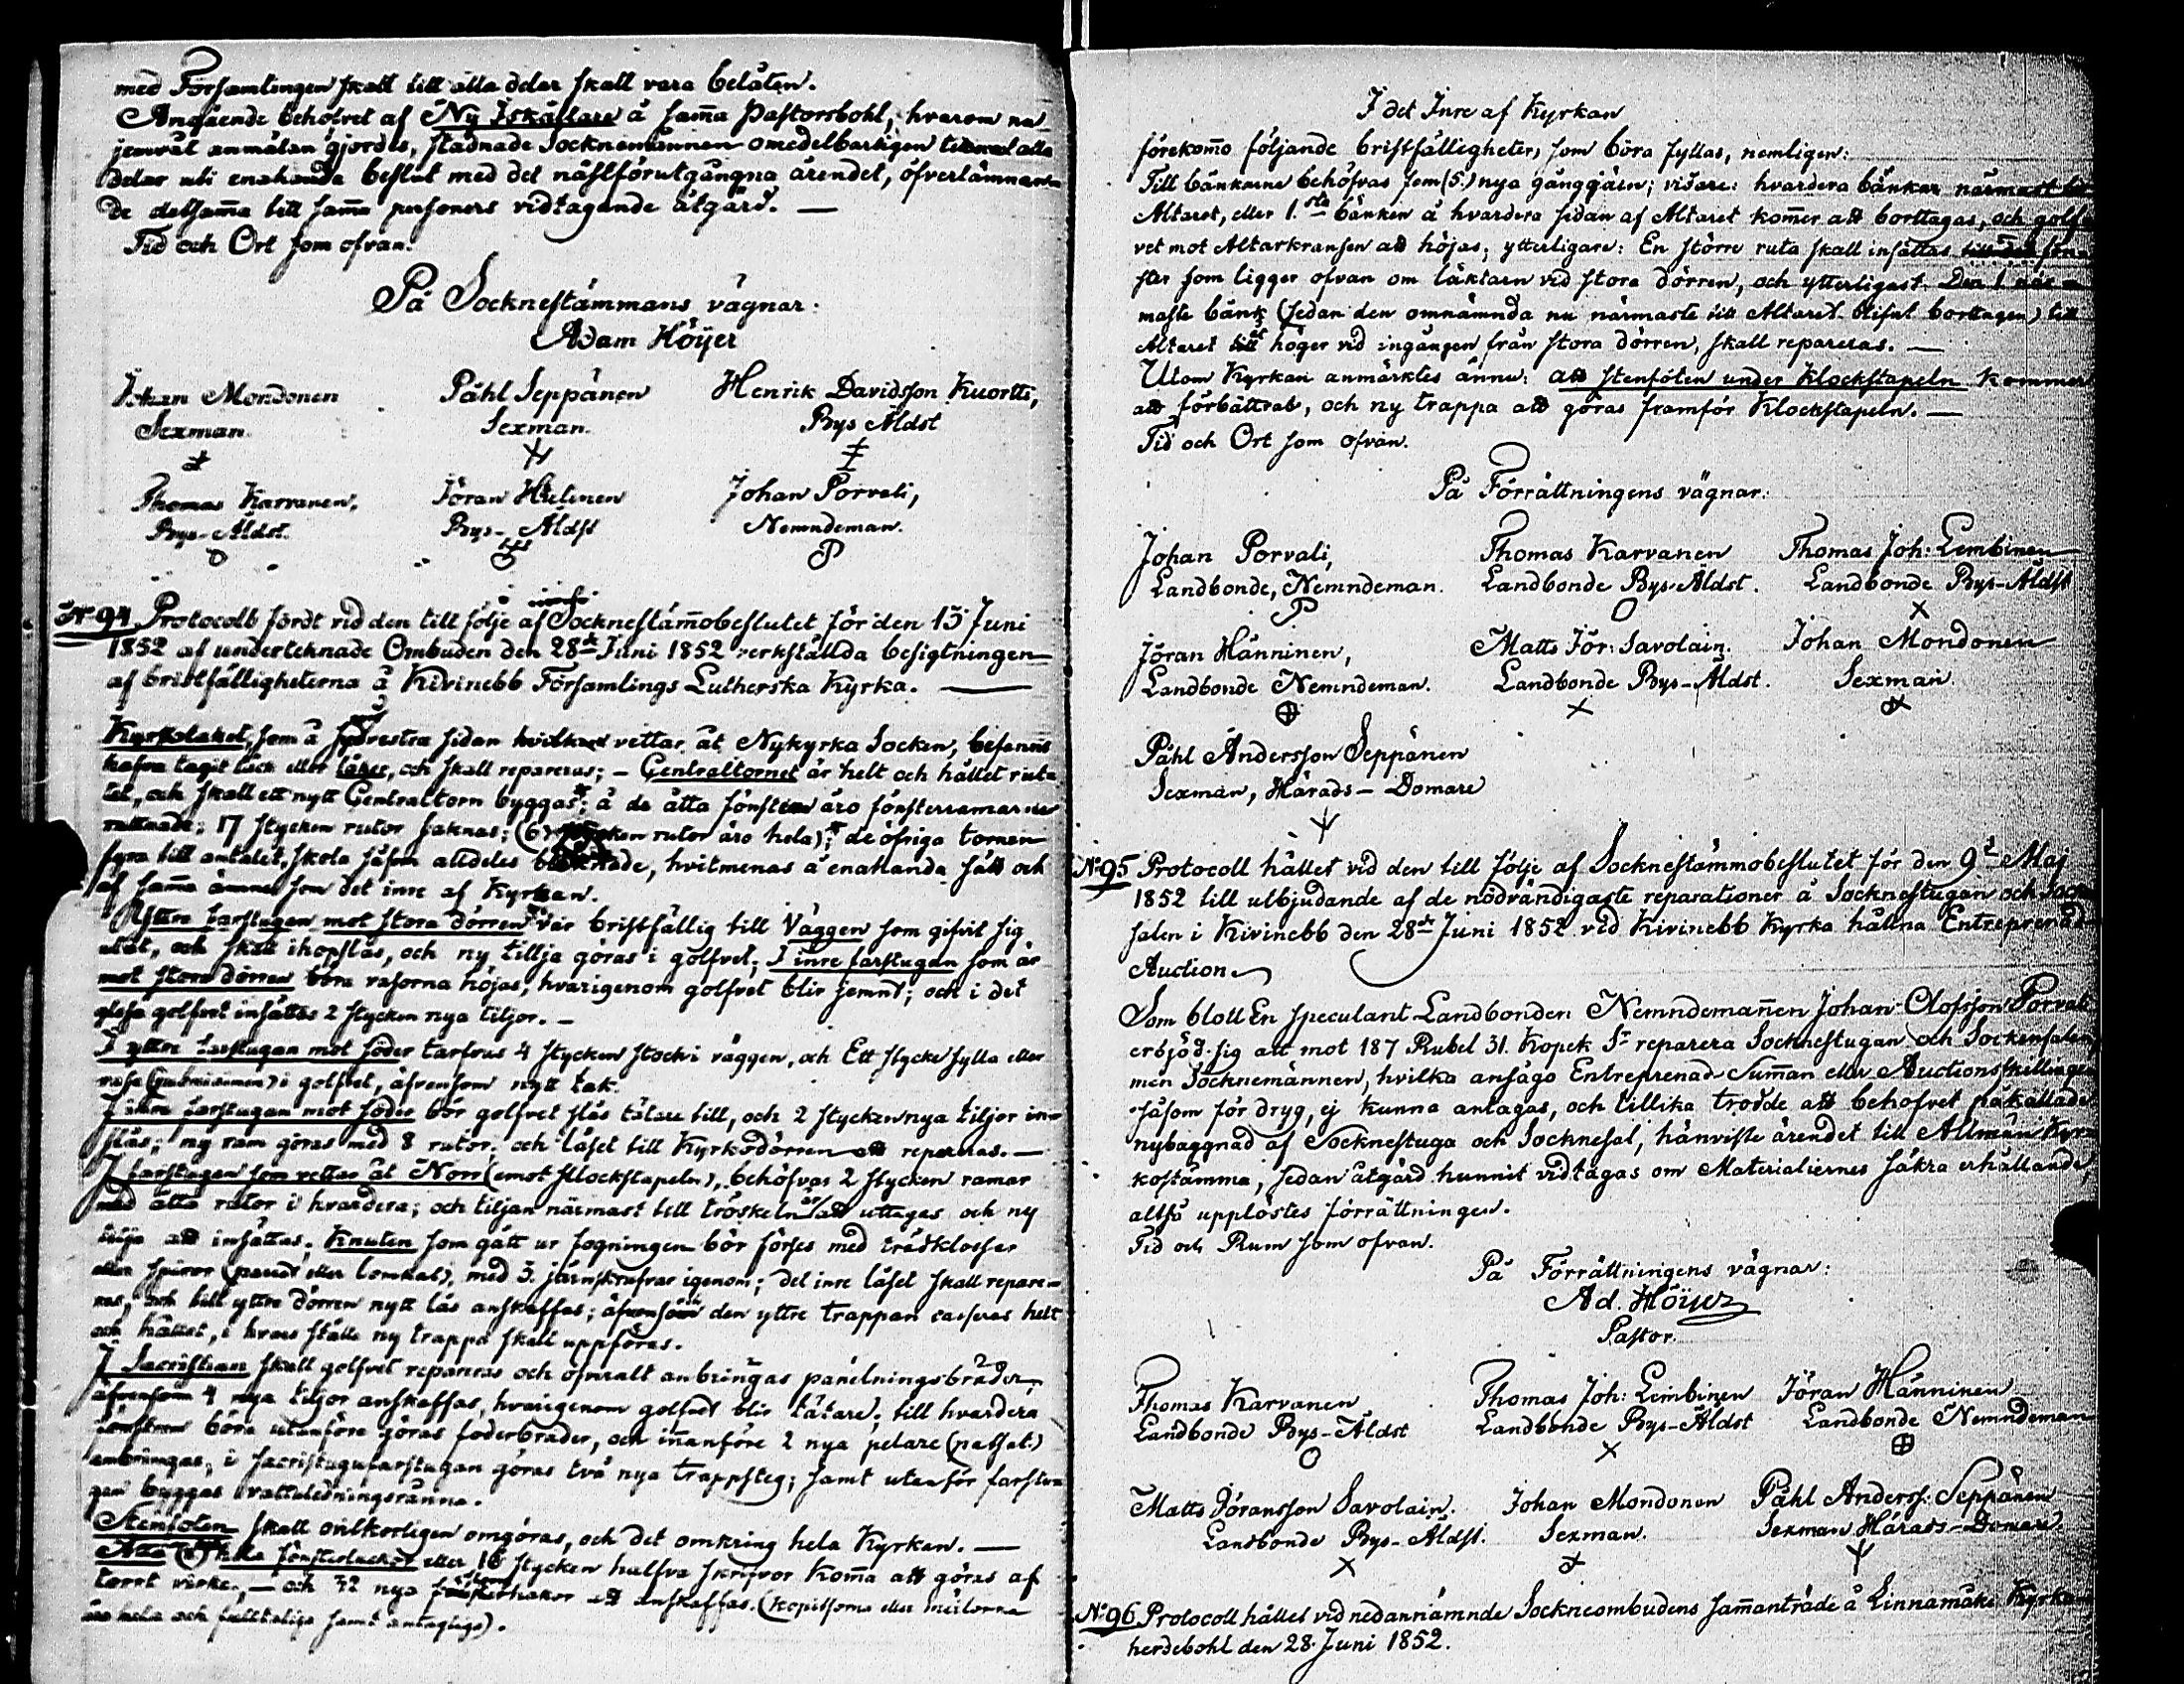 med Församlingen skall till alla delar skall vara belåten.
Angående behofvet af Ny Iskällare å sam̄a Pastorsbohl, hvarom nu
jemväl anmälan gjordes, stadnade Socknemännen omedelbarligen alla
delar uti enahanda beslut med det nästförutgångna ärendet, öfverlämnan-
de detsam̄a till sam̄a personers vidtagande åtgärd. —
Tid och Ort som ofvan.
På Socknestämmans vägnar:
Adam Höijer
Johan Mondonen Påhl Seppänen Henrik Davidsson Kuortti,
Sexman. Sexman. Bys Äldst
Thomas Karvanen, Jöran Hielinen Johan Porvali,
Bys-Äldst. Bys-Äldst Nemndeman.
N:o 94. Protocoll fördt vid den till följe af Socknestäm̄obeslutet för den 13 Juni
1852 af undertecknade Ombuden den 28de Juni 1852 verkställda besigtningen
af bristfälligheterna å Kivinebb Församlings Lutherska Kyrka. —
Kyrkotaket, som å sidan vettar åt Nykyrka Socken, befanns
hafva tagit läck eller läker, och skall repareras; — Centraltornet är helt och hållet rutt-
tet, och skall ett nytt Centraltorn byggas; å de åtta fönstren äro fönsterramarne
ruttnade; 17 stycken rutor saknas; (6 stycken rutor äro hela); de öfriga tornen
fyra till antalet, skola såsom alldeles, hvitmenas å enahanda sätt och
af sam̄a ämne som det inre af Kyrkan.
Yttre farstugan mot stora dörren var bristfällig till Väggen som gifvit sig
utåt, och skall ihopslås, och ny tillja göras i golfvet; I inre farstugan som är
mot stora dörren böra vasorna höjas, hvarigenom golfvet blir jemnt; och i det
glesa golfvet insättes 2 stycken nya tiljor. —
I yttre farstugan mot söder tarfvas 4 stycken stock i väggen, och Ett stycke sylla eller
vasa i golfvet, äfvensom nytt tak.
I inre farstugan mot söder bör golfvet slås tätare till, och 2 stycken nya tiljor in-
slås; ny ram göras med 8 rutor, och låset till Kyrkodörren att repareras. —
I farstugan som vettar åt Norr (emot Klockstapeln), behöfvas 2 stycken ramar
med åtta rutor i hvardera; och tiljan närmast till tröskeln att uttagas och ny
tilja att insättas; Knuten som gått ur fogningen bör förses med trädklossar
eller spiror, med 3. järnskrufvar igenom; det inre låset skall repare-
ras, och till yttre dörren nytt lås anskaffas; äfvensom den yttre trappan casseras helt
och hållet, i hvars ställe ny trappa skall uppföras.
I Sacristian skall golfvet repareras och ofvanalt anbringas panelningsbräder,
äfvensom 4 nya tiljor anskaffas, hvarigenom golfvet blir tätare; till hvardera
fönstren böra utanföre göras foderbräder, och in̄anföre 2 nya pelare (patsat)
anbringas; i sacristugufarstugan göras två nya trappsteg; samt utanför farstu-
gan byggas vattuledningsränna.
Stenfoten skall ovilkorligen omgöras, och det omkring hela Kyrkan. —
hela fönsterluckor eller 16 stycken halfva skrifvor kom̄a att göras af
torrt virke, — och 32 nya fönsterhakor att anskaffas.
äro hela och fulltaliga samt antagliga).
I det Inre af Kyrkan
förekom̄o följande bristfälligheter, som böra fyllas, nemligen:
Till bänkarne behöfvas fem (5.) nya gånggjärn; vidare: hvardera bänkar närmast till
Altaret, eller 1.sta bänken å hvardera sidan af Altaret kom̄er att borttagas, och golf-
vet mot Altarkransen att höjas; ytterligare: En större ruta skall insättas fön-
ster som ligger ofvan om läktarn vid stora dörren, och ytterligast: Den 1 när-
maste bänk (sedan den omnämnda nu närmaste till Altaret blifvit borttagen) till
Altaret till höger vid ingången från stora dörren, skall repareras. —
Utom Kyrkan anmärktes ännu: att stenfoten under Klockstapeln kommer
att förbättras, och ny trappa att göras framför Klockstapeln. —
Tid och Ort som ofvan.
På Förrättningens vägnar:
Johan Porvali, Thomas Karvanen Thomas Joh: Lembinen
Landbonde, Nemndeman. Landbonde Bys-Äldst. Landbonde Bys-Äldst
Jöran Hänninen, Matts Jör: Savolain. Johan Mondonen
Landbonde Nemndeman. Landbonde Bys-Äldst. Sexman.
Påhl Andersson Seppänen
Sexman, Härads-Domare
N:o 95 Protocoll hållet vid den till följe af Socknestämmobeslutet för den 9de Maj
1852 till utbjudande af de nödvändigaste reparationer å Socknestugan och Sockne-
salen i Kivinebb den 28de Juni 1852 vid Kivinebb Kyrka hållna Entreprenad
Auction.
Som blott En speculant Landbonden Nemndeman̄en Johan Olofsson Porvali
erbjöd sig att mot 187 Rubel 31. Kopek Sr reparera Socknestugan och Sockensalen,
men Socknemännen, hvilka ansågo Entreprenad-Sum̄an eller Auctionsskillingen
såsom för dryg, ej kunna antagas, och tillika trodde att behofvet påkallade
nybyggnad af Socknestuga och Socknesal, hänviste ärendet till Allmän Kyr-
kostämma, sedan åtgärd hunnit vidtagas om Materialiernes säkra erhållande;
alltså upplöstes förrättningen.
Tid och Rum som ofvan.
På Förrättningens vägnar:
Ad. Höijer
Pastor.
Thomas Karvanen Thomas Joh: Lembinen Jöran Hänninen
Landbonde Bys-Äldst Landbonde Bys-Äldst Landbonde Nemndeman
Matts Jöransson Savolain. Johan Mondonen Påhl Anderss: Seppänen
Landbonde Bys-Äldst. Sexman. Sexman Härads-Domare
N:o 96 Protocoll hållet vid nedannämnde Sockneombudens sam̄anträde å Linnamäki Kyrko-
herdebohl den 28. Juni 1852.